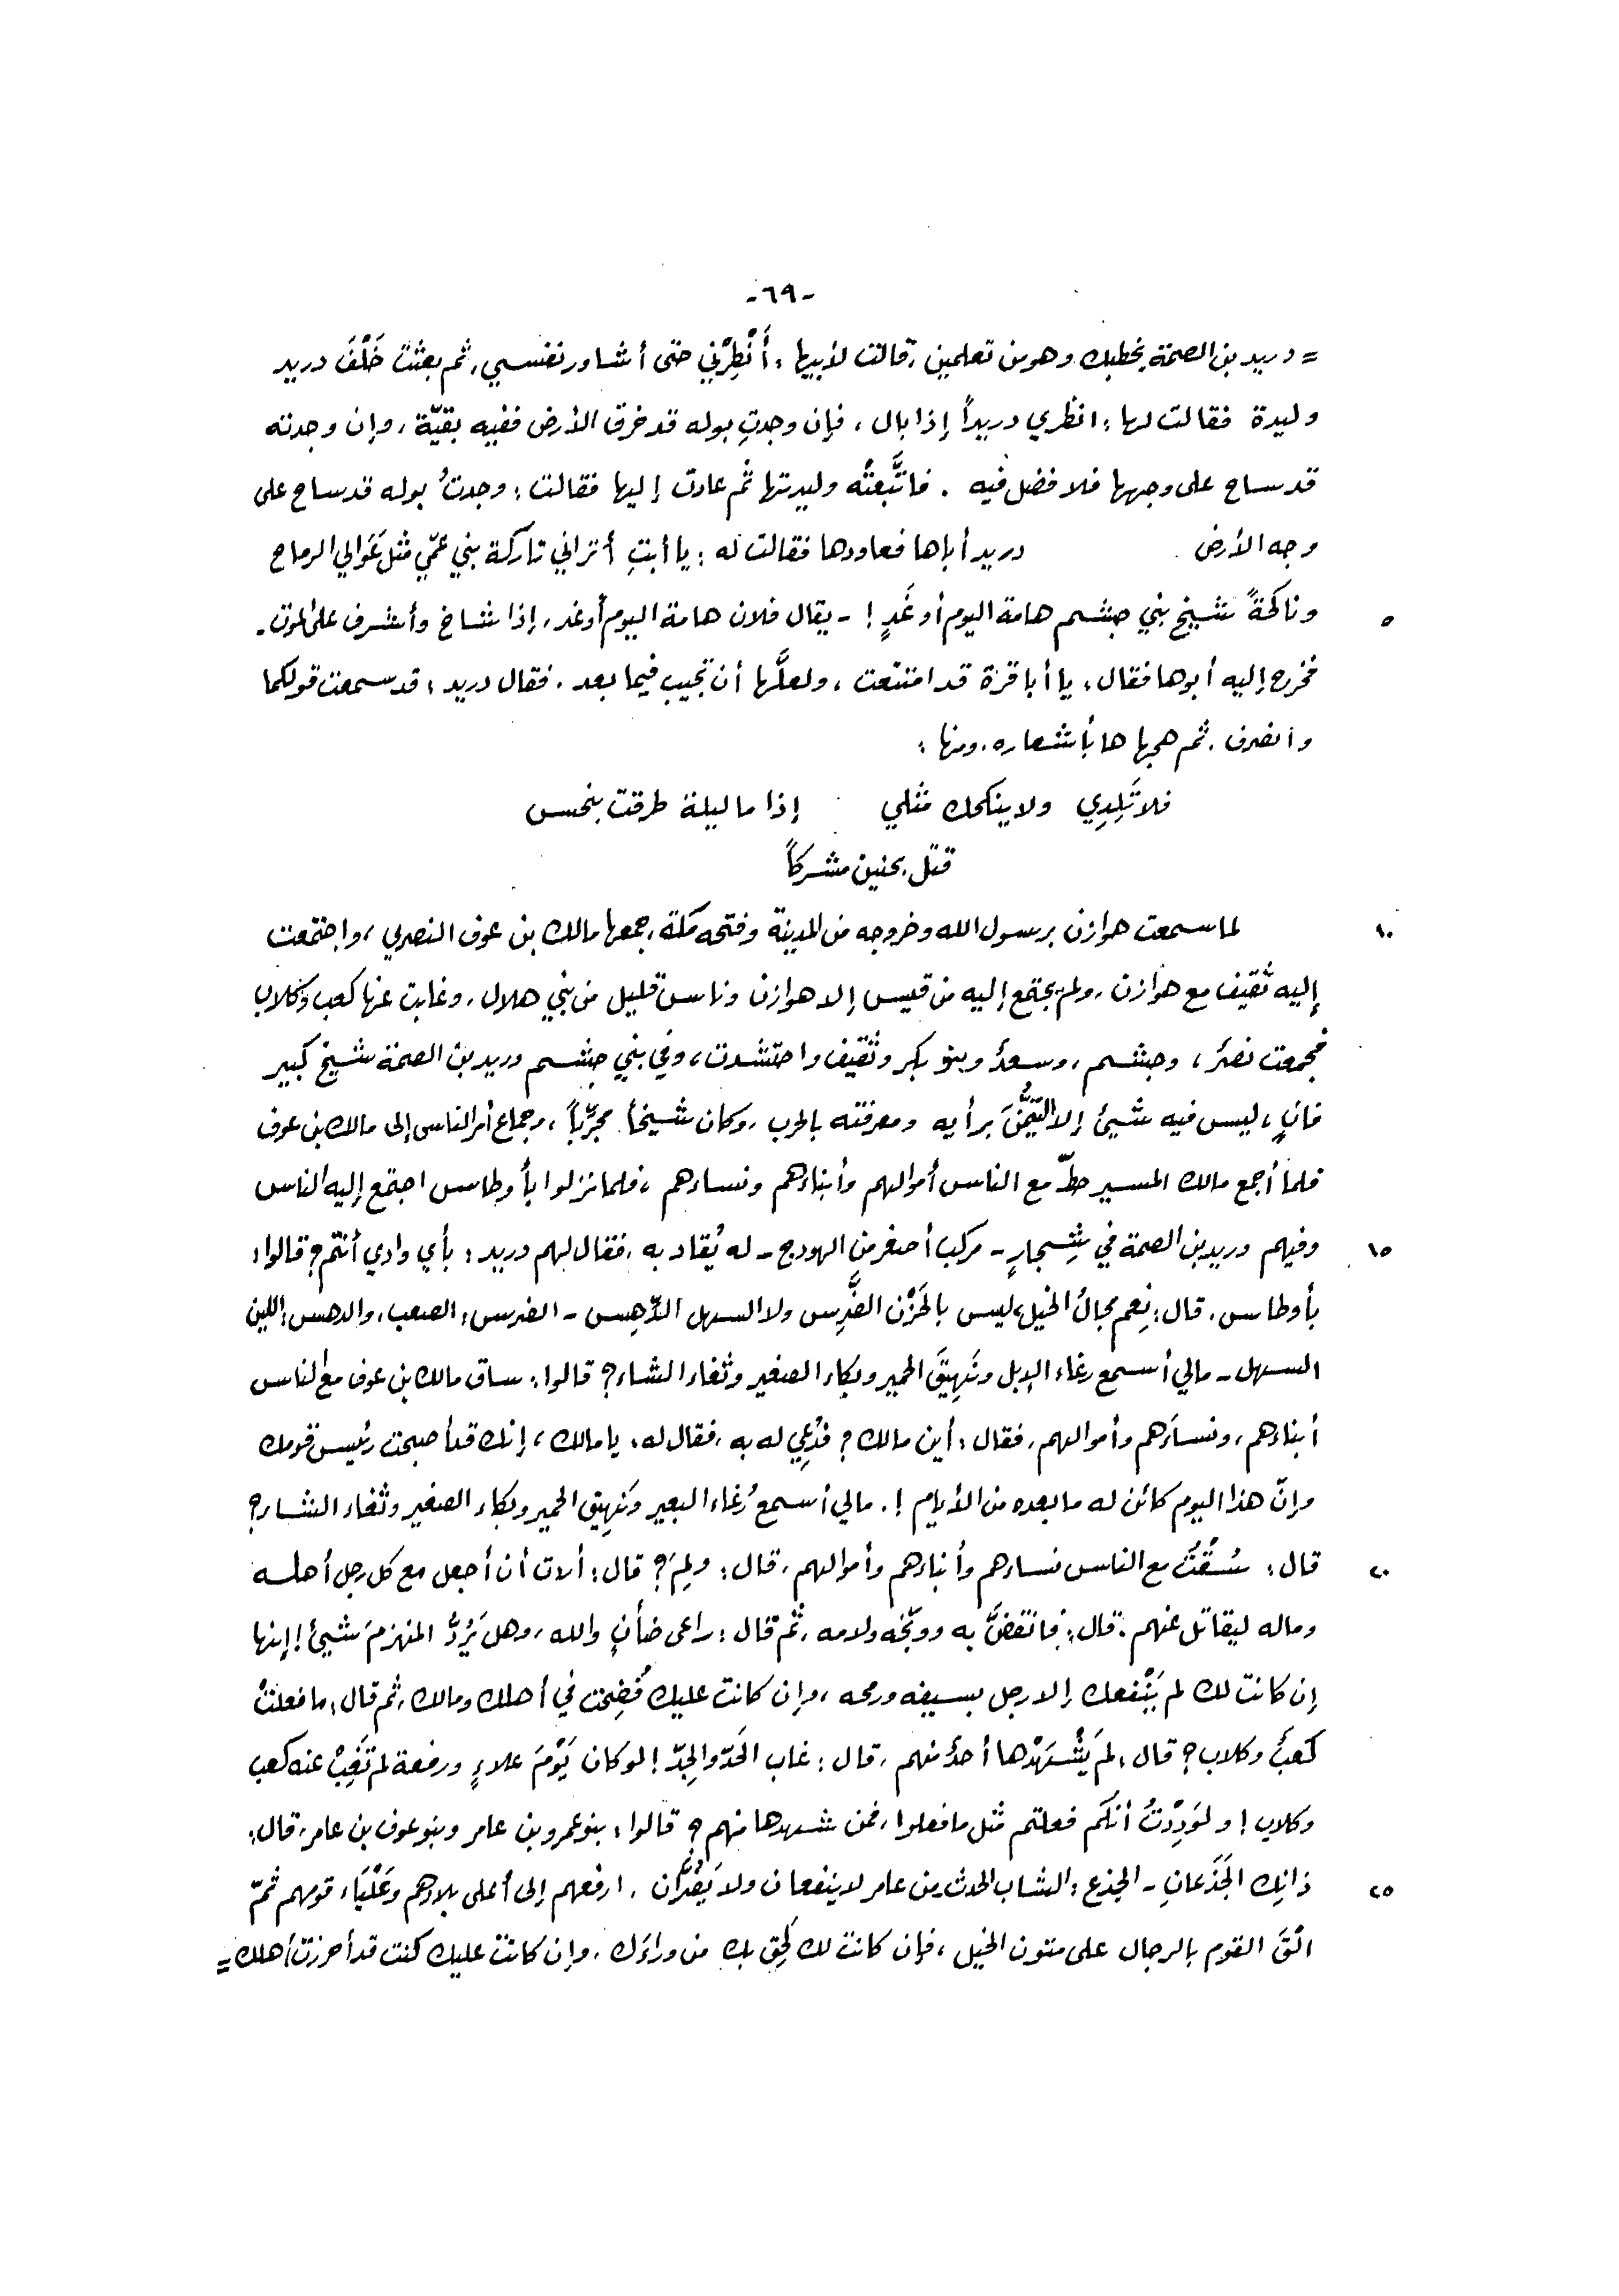 -٦٩-
= دريد بن الصمة يخطبك وهو من تعلمين، قالت لأبيها: أَنْظِرْني حتى أشاور نفسي، ثم بعثت خَلْفَ دريد
وليدة فقالت لها: انظري دريداً إذا بال، فإن وجدتِ بوله قد خرق الأرض ففيه بقيّة، وإن وجدته
قد ساح على وجهها فلا فضل فيه. فاتَّبعتْه وليدتها ثم عادت إليها فقالت: وجدتُ بوله قد ساح على
وجه الأرض. دريد أباها فعاودها فقالت له: يا أبتِ أتراني تاركة بني عمّي مثل عَوالي الرماح
٥ وناكحةً شيخ بني جشم هامة اليوم أو غَدٍ! - يقال فلان هامة اليوم أو غد، إذا شاخ وأشرف على الموت -
فخرج إليه أبوها فقال: يا أبا قرة قد امتنعت، ولعلَّها أن تجيب فيما بعد. فقال دريد: قد سمعت قولكما
وانصرف. ثم هجاها بأشعاره، ومنها:
فلا تَلِدِي ولا ينكحك مثلي إذا ما ليلة طرقت بنحس
قتل بحنين مشركاً
١٠ لما سمعت هوازن برسول الله وخروجه من المدينة وفتحه مكة، جمعها مالك بن عوف النصري، واجتمعت
إليه ثقيف مع هوازن، ولم يجتمع إليه من قيس إلا هوازن وناس قليل من بني هلال، وغابت عنها كعب وكلاب
فجمعت نصرٌ، وجشم، وسعدٌ وبنو بكر وثقيف واحتشدت، وفي بني جشم دريد بن الصمة شيخ كبير
فانٍ، ليس فيه شيئ إلا التيمُّنَ برأيه ومعرفته بالحرب، وكان شيخاً مجرّباً، وجماع أمر الناس إلى مالك بن عوف
فلما أجمع مالك المسير حطّ مع الناس أموالهم وأبناءهم ونساءهم، فلما نزلوا بأوطاس اجتمع إليه الناس
١٥ وفيهم دريد بن الصمة في شِجارٍ - مركب أصغر من الهودج - له يُقاد به، فقال لهم دريد: بأي وادي أنتم؟ قالوا:
بأوطاس. قال: نِعم مجالُ الخيل، ليس بالحَزْن الضَّرِس ولا السهل الدَّهِس - الضرس: الصعب، والدهس: اللين
السهل - مالي أسمع رغاء الإبل ونَهِيقَ الحمير وبكاء الصغير وثغاء الشاء؟ قالوا: ساق مالك بن عوف مع الناس
أبناءهم، ونساءَهم وأموالهم، فقال: أين مالك؟ فدُعِي له به، فقال له: يا مالك، إنك قد أصبحت رئيس قومك
وإنّ هذا اليوم كائن له ما بعده من الأيام!. مالي أسمع رُغاء البعير ونَهِيق الحمير وبكاء الصغير وثغاء الشاء؟
٢٠ قال: سُقْتُ مع الناس نساءهم وأبناءهم وأموالهم، قال: ولِمَ؟ قال: أردت أن أجعل مع كل رجل أهله
وماله ليقاتل عنهم. قال: فانقضَّ به ووبّخه ولامه، ثم قال: راعى ضأنٍ والله، وهل يَرُدُّ المنهزمَ شيئ! إنها
إن كانت لك لم يَنْفعك إلا رجل بسيفه ورمحه، وإن كانت عليك فُضِحْتَ في أهلك ومالك، ثم قال: ما فعلتْ
كعبٌ وكلاب؟ قال: لم يَشْهَدْها أحدٌ منهم، قال: غاب الحَدّ والجِدّ! لو كان يَوْمَ علاءٍ ورفعة لم تَغِبْ عنه كعب
وكلاب! ولوَدِدْتُ أنكم فعلتم مثل ما فعلوا، فمن شهدها منهم؟ قالوا: بنو عمرو بن عامر وبنو عوف بن عامر، قال:
٢٥ ذانِك الجَذَعانِ - الجذع: الشاب الحدث من عامر لا ينفعان ولا يَضُرَّان. ارفعهم إلى أعلى بلادهم وعَلْيَاء قومهم ثمّ
الْقَ القوم بالرجال على متون الخيل، فإن كانت لك لَحِق بك من وراءَك، وإن كانت عليك كنت قد أحرزت أهلك =